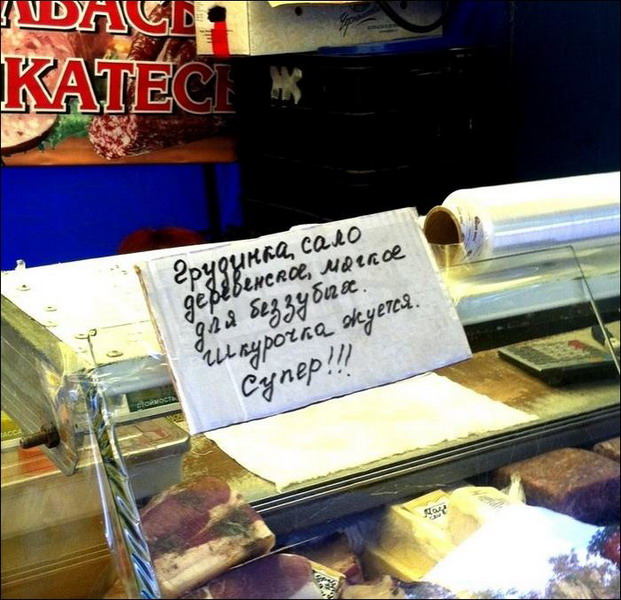 ЛБАС
КАТЕС
Грудинка, сало
деревенское, мягкое
для беззубых.
Шкурочка жуется.
Супер!!!
СТОИМОСТЬ
КАССА